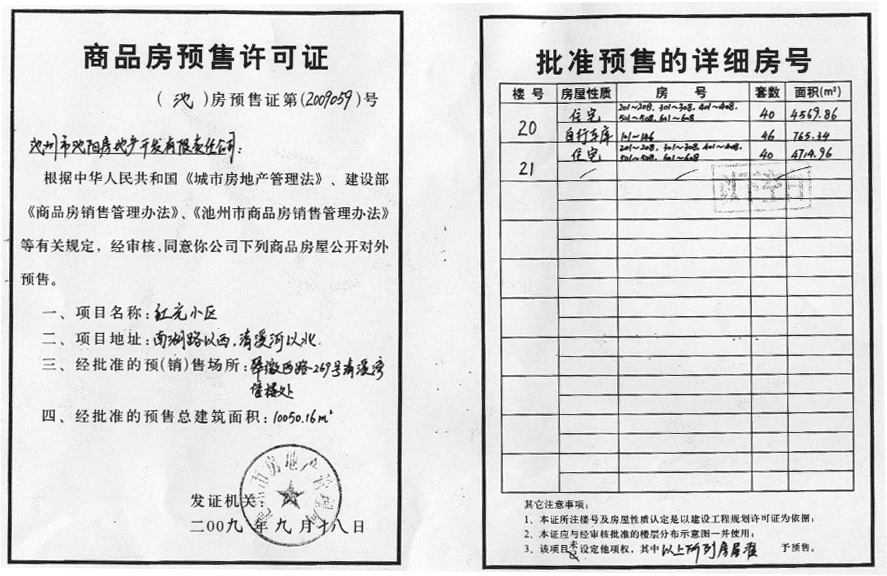 商品房预售许可证
(池)房预售证第(2009059)号
池州市池阳房地产开发有限责任公司:
根据中华人民共和国《城市房地产管理法》、建设部
《商品房销售管理办法》、《池州市商品房销售管理办法》
等有关规定,经审核,同意你公司下列商品房屋公开对外
预售。
一、项目名称:红元小区
二、项目地址:南湖路以西,清溪河以北.
三、经批准的预(销)售场所:翠微西路269号清溪湾
售楼处
四、经批准的预售总建筑面积:10050.16m²
池州市房地产管理局
发证机关
二00九年九月十八日
批准预售的详细房号
楼号 房屋性质 房号 套数 面积(m²)
20 住宅 201~208. 301~308. 401~408.
501~508. 601~608 40 4569.86
自行车库 101~146 46 765.34
21 住宅 201~208. 301~308. 401~408.
501~508. 601~608 40 4714.96
以下空白
其它注意事项:
1、本证所注楼号及房屋性质认定是以建设工程规划许可证为依据;
2、本证应与经审核批准的楼层分布示意图一并使用;
3、该项目未设定他项权,其中以上所列房屋准予预售。